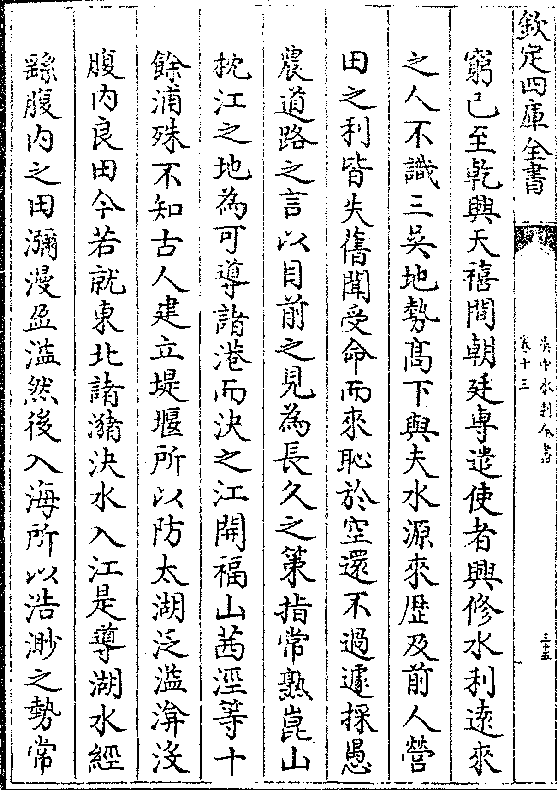 欽定四庫全書
吳中水利全書
卷十三
三十五
窮已至乾興天禧間朝廷専遣使者興修水利逺來
之人不識三吳地勢髙下與夫水源來歴及前人營
田之利皆失舊聞受命而來恥於空還不過遽採愚
農道路之言以目前之見為長久之策指常熟崑山
枕江之地為可導諸港而決之江開福山茜涇等十
餘浦殊不知古人建立堤堰所以防太湖泛溢渰沒
腹内良田今若就東北諸瀦決水入江是導湖水經
繇腹内之田瀰漫盈溢然後入海所以浩渺之勢常